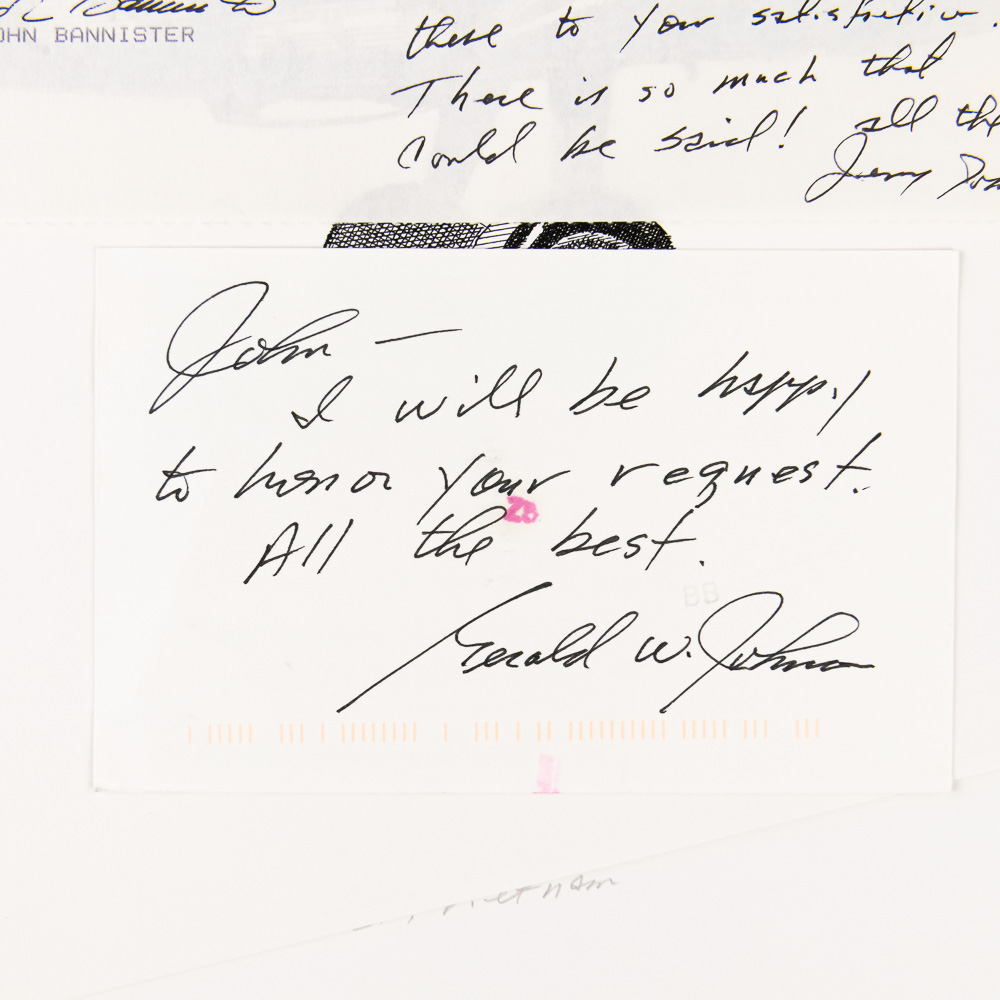 JOHN BANNISTER
these to your satisfaction.
There is so much that
could be said! all the
Jerry
John —
I will be happy
to honor your request.
All the best.
Gerald W. Johnson
28
BB
Vietnam